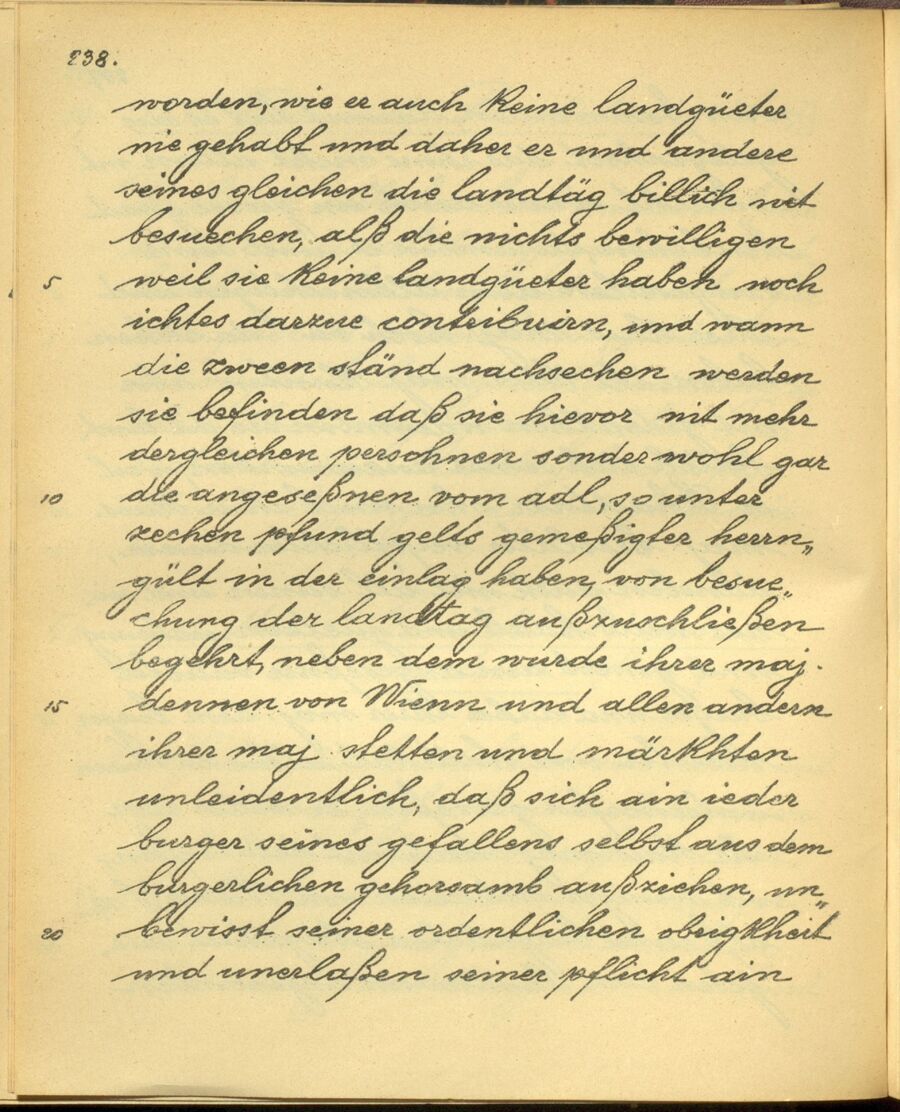 238.
worden, wie er auch keine landgüeter
nie gehabt und daher er und andere
seines gleichen die landtäg billich nit
besuechen, alß die nichts bewilligen
5 weil sie keine landgüeter haben noch
ichtes darzue contribuirn, und wann
die zween ständ nachsechen werden
sie befinden daß sie hievor nit mehr
dergleichen persohnen sonder wohl gar
10 die angeseßnen vom adl, so unter
zechen pfund gelts gemeßigter herrn„
gült in der einlag haben, von besue„
chung der landttag außzuschließen
begehrt, neben dem wurde ihrer maj.
15 dennen von Wienn und allen andern
ihrer maj. stetten und märkhten
unleidentlich, daß sich ain ieder
burger seines gefallens selbst aus dem
burgerlichen gehorsamb außziehen, un„
20 bewisst seiner ordentlichen obrigkheit
und unerlaßen seiner pflicht ain